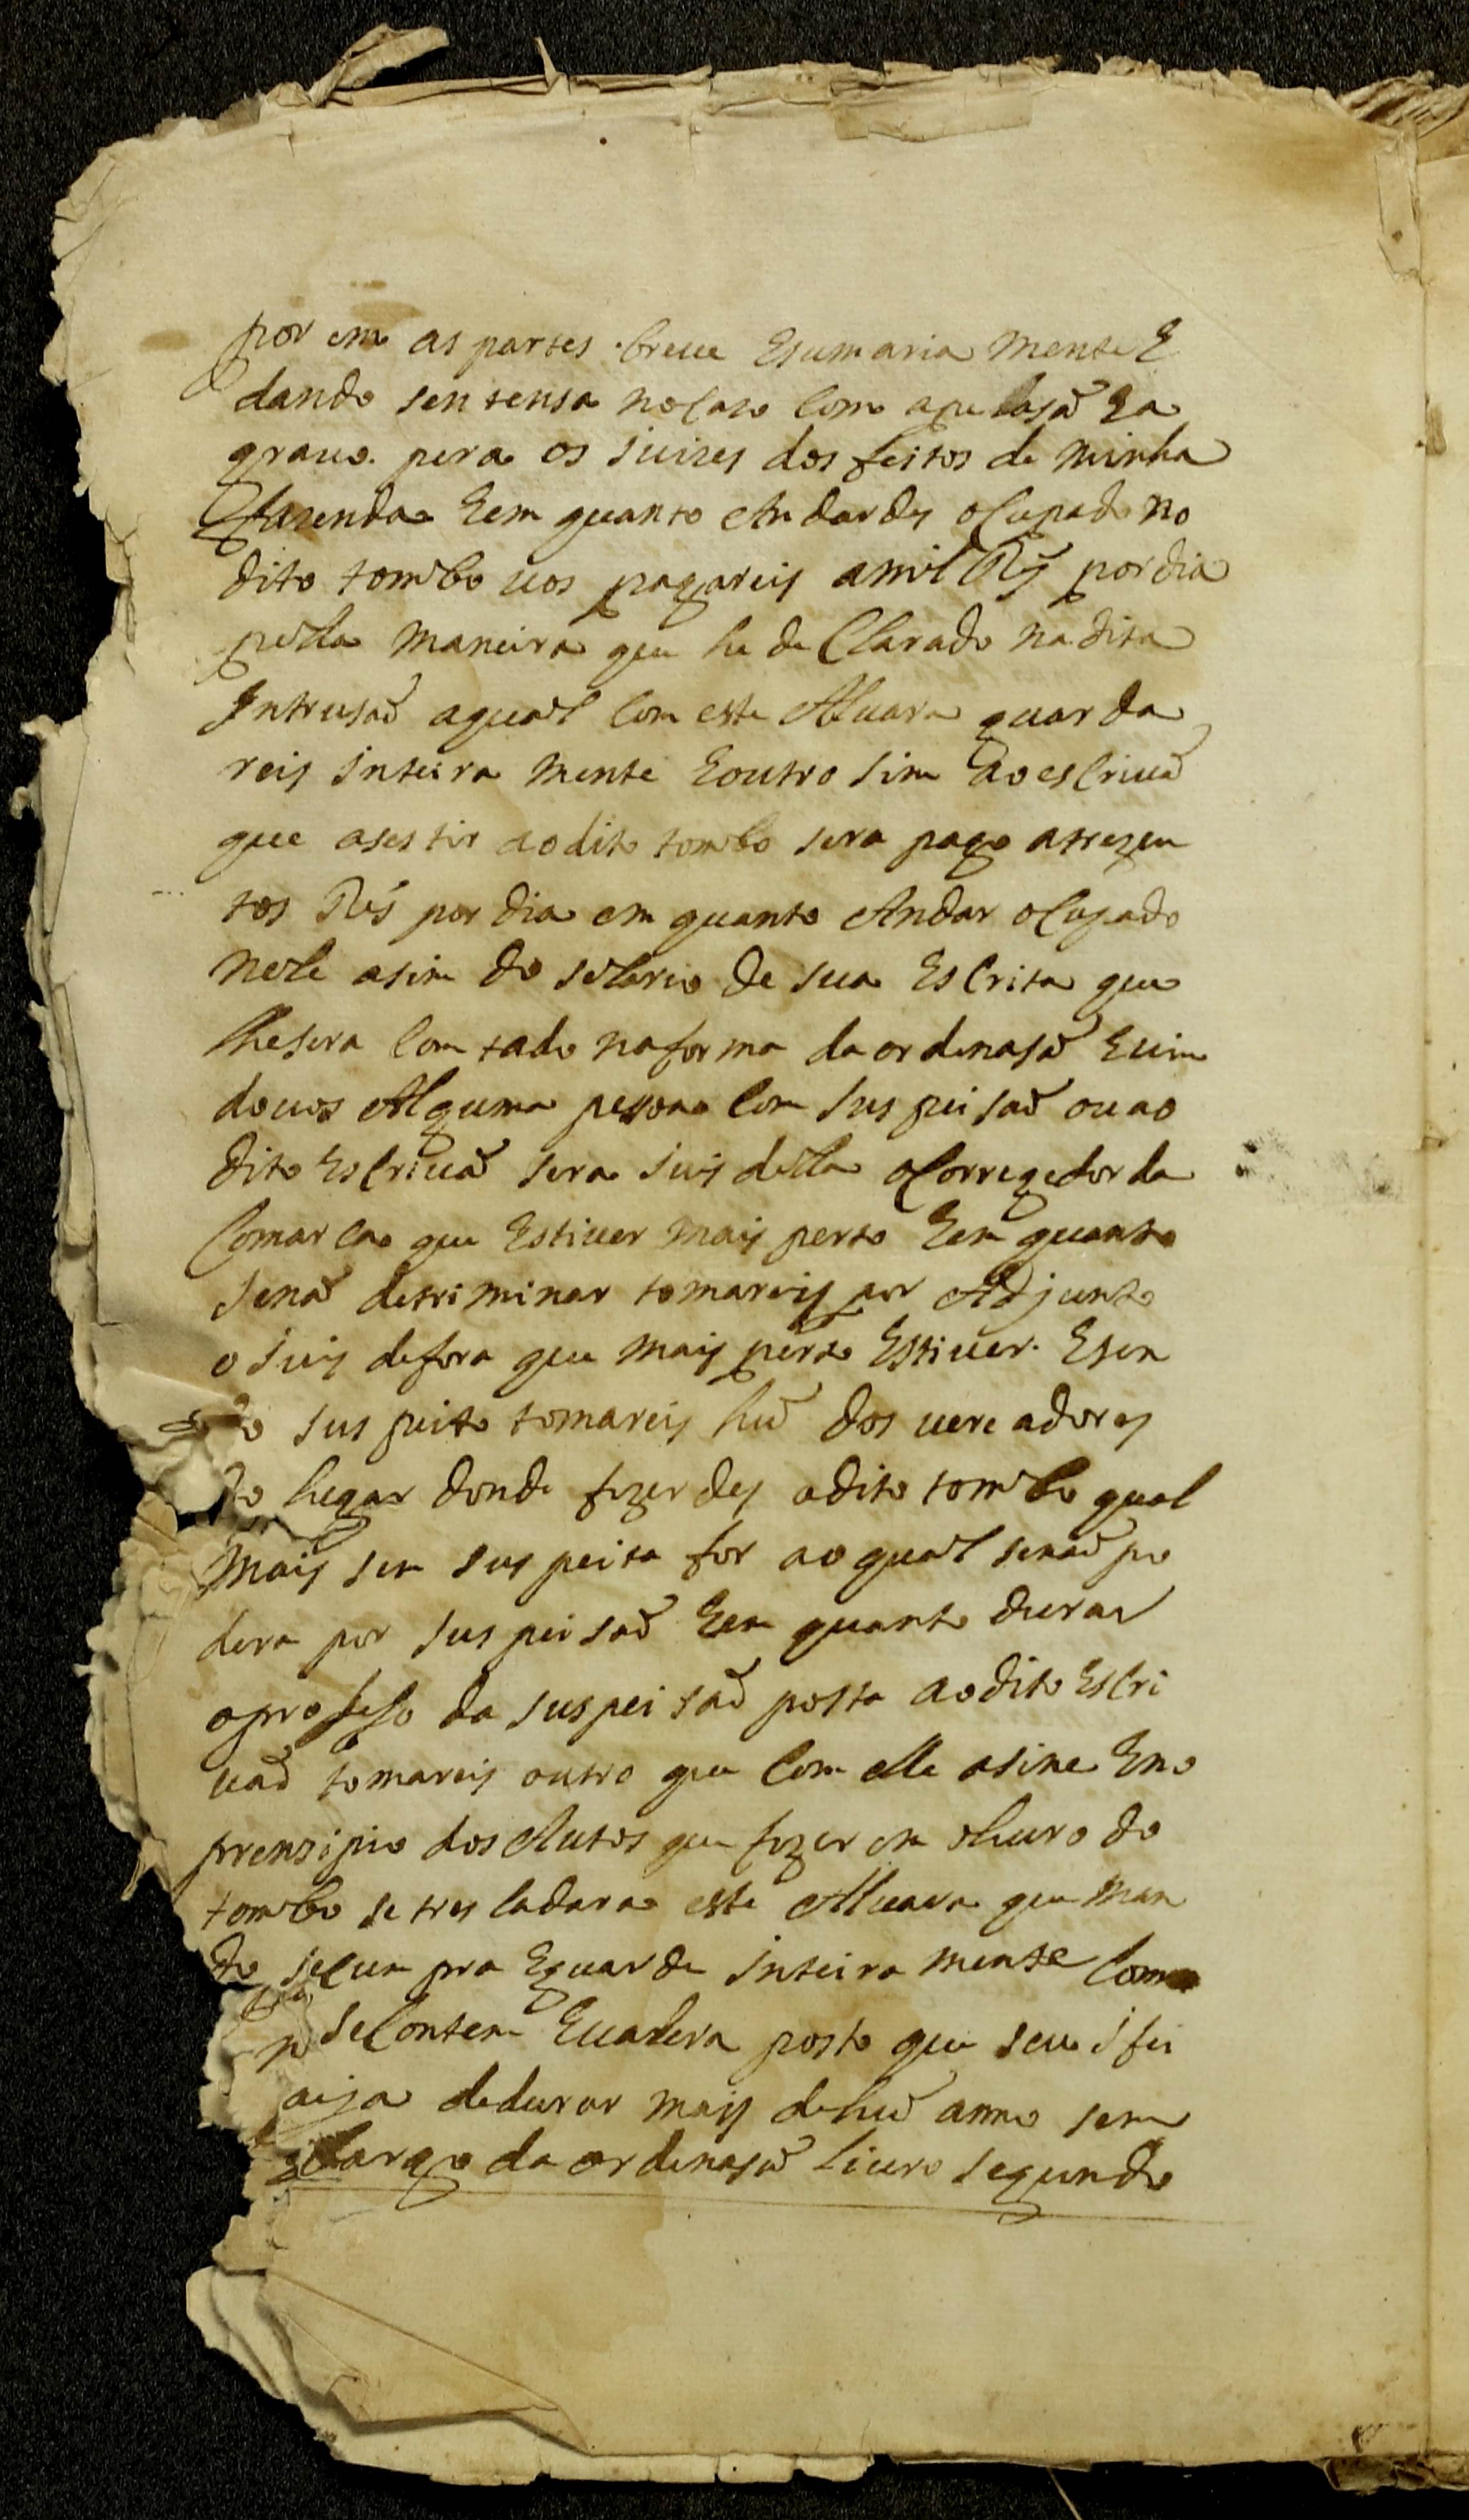 por em as partes breue Esumaria mente E
dando sentensa no Caso Com apelasaõ Ea
grauo pera os Juizes dos feitos de minha
fazenda Eem quanto Andardes oCupado no
dito tombo uos pagareis a mil Rs por dia
pella maneira que he deClarado na dita
Intrusaõ a qual Com este Aluara guarda
reis inteira mente Eoutro sim ao esCriuaõ
que asestir ao dito tombo sera pago a trezen
tos Rs por dia em quanto Andar oCupado
nelle asim do selario de sua EsCrita que
lhe sera Comtado na forma da ordenasaõ Euin
douos Alguma pessoa Com suspeisaõ ou ao
dito EsCriuaõ sera Juis della o Corregedor da
Comarca que Estiuer mais perto Eem quanto
senaõ detriminar tomareis por Adjunto
o Juis de fora que mais perto Estiuer. Esen
do suspeito tomareis huũ dos uereadores
do lugar donde fizerdes o dito tombo qual
mais sem suspeita for ao qual senaõ po
dera por suspeisaõ Eem quanto durar
o prosesso da suspeisaõ posta ao dito EsCri
uaõ tomareis outro que Com elle asine Eno
prensipio dos Autos que fizer em o liuro do
tombo se tresladara este Aluara que man
do se Cumpra Eguarde inteira mente Como
se Contem Eualera posto que seu ifei
aija de durar mais de huũ anno sem
embargo da ordenasaõ Liuro segundo